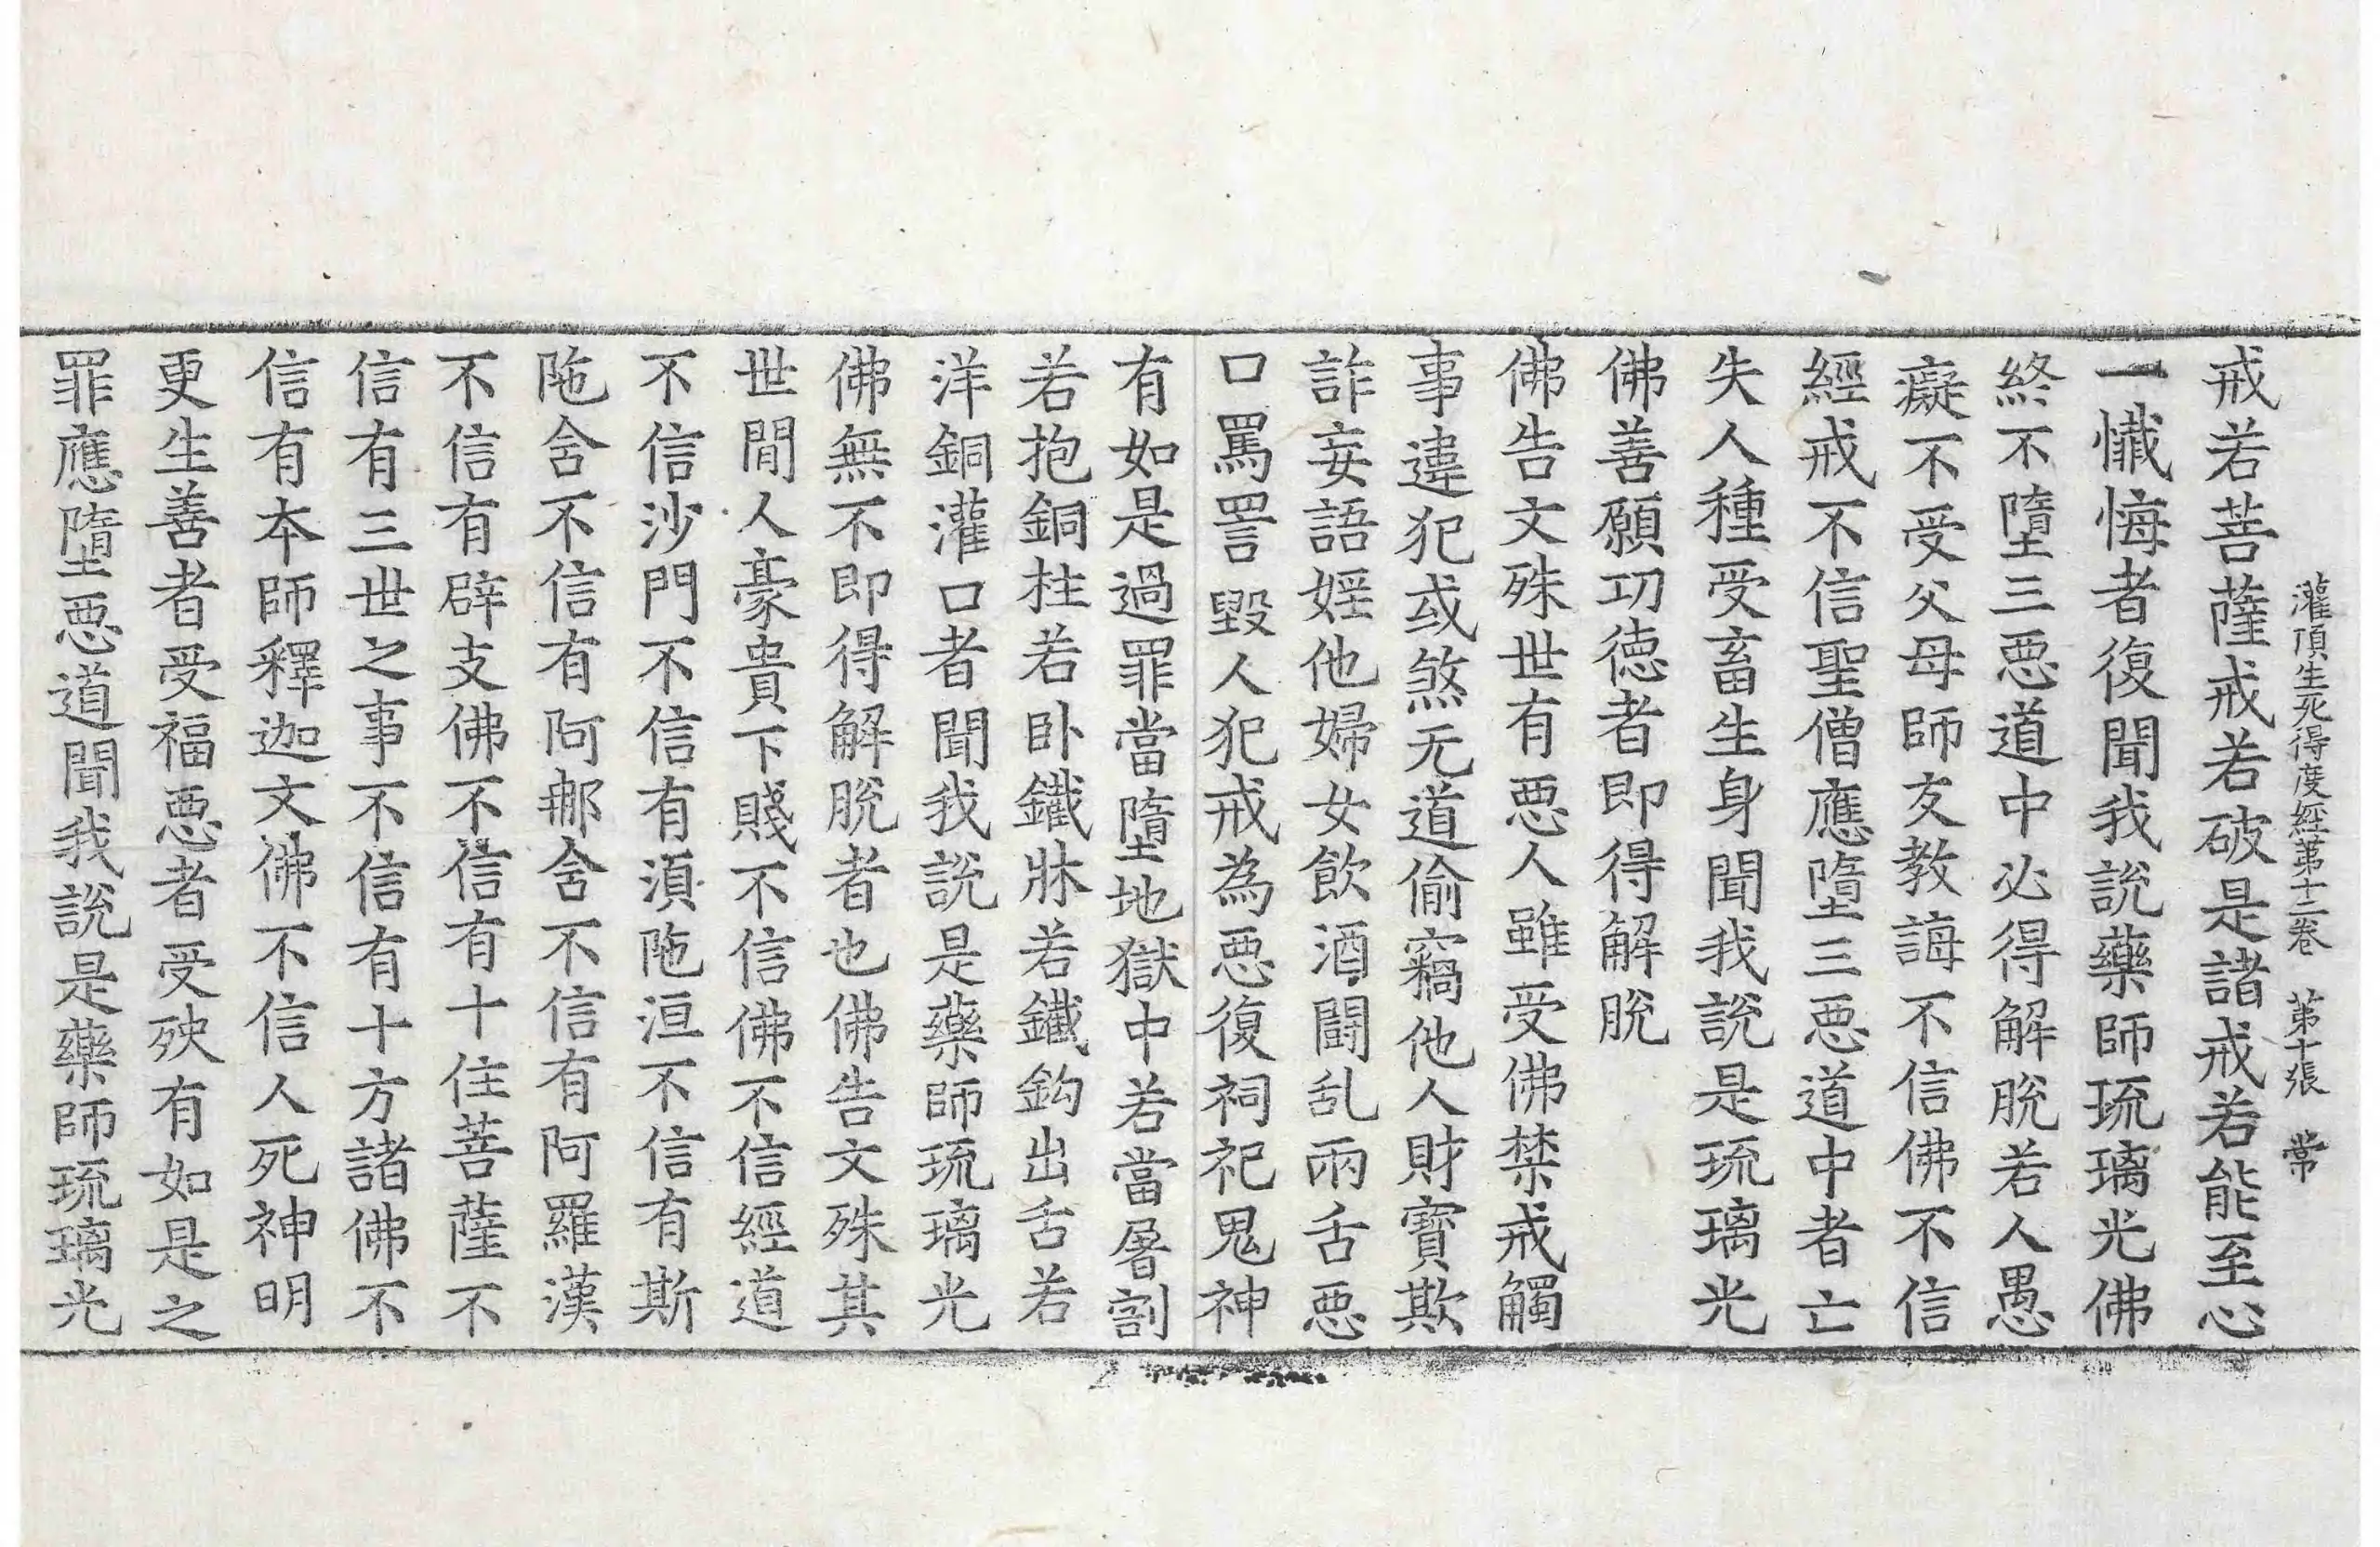 灌頂生死得度經第十二卷　第十張　常
戒若菩薩戒若破是諸戒若能至心
一懺悔者復聞我說藥師琉璃光佛
終不墮三惡道中必得解脫若人愚
癡不受父母師友教誨不信佛不信
經戒不信聖僧應墮三惡道中者亡
失人種受畜生身聞我說是琉璃光
佛善願功德者即得解脫
佛告文殊世有惡人雖受佛禁戒觸
事違犯或煞无道偷竊他人財寶欺
詐妄語婬他婦女飲酒鬪乱兩舌惡
口罵詈毀人犯戒為惡復祠祀鬼神
有如是過罪當墮地獄中若當屠割
若抱銅柱若卧鐵牀若鐵鈎出舌若
洋銅灌口者聞我說是藥師琉璃光
佛無不即得解脫者也佛告文殊其
世間人豪貴下賤不信佛不信經道
不信沙門不信有湏陁洹不信有斯
陁舍不信有阿那舍不信有阿羅漢
不信有辟支佛不信有十住菩薩不
信有三世之事不信有十方諸佛不
信有本師釋迦文佛不信人死神明
更生善者受福惡者受殃有如是之
罪應墮惡道聞我說是藥師琉璃光